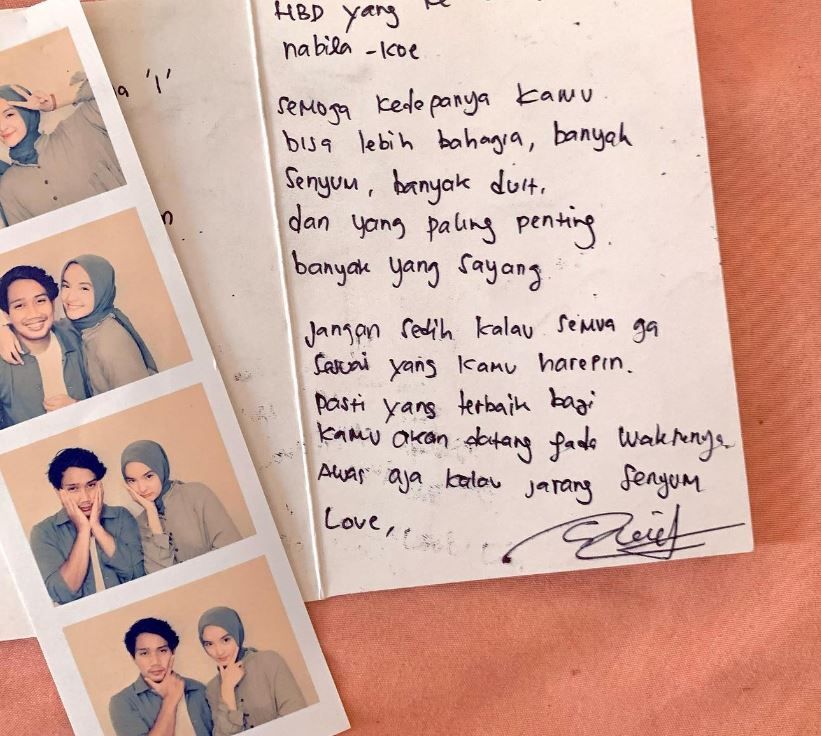 a '1'
n
HBD yang
nabila -koe
semoga kedepanya kamu
bisa lebih bahagia, banyak
senyum, banyak duit,
dan yang paling penting
banyak yang sayang
Jangan sedih kalau semua ga
sesuai yang kamu harepin.
pasti yang terbaik bagi
kamu akan datang pada waktunya
Awas aja kalau jarang senyum
Love,